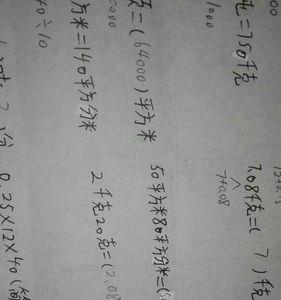 吨=750千克
7.08千克=( 7 )千克
1000
7+0.08
=(64000)平方米
50平方米80平方分米=(5
000
方米=140平方分米
2千克20克=(2.08
40÷10
0.25×12×40(简